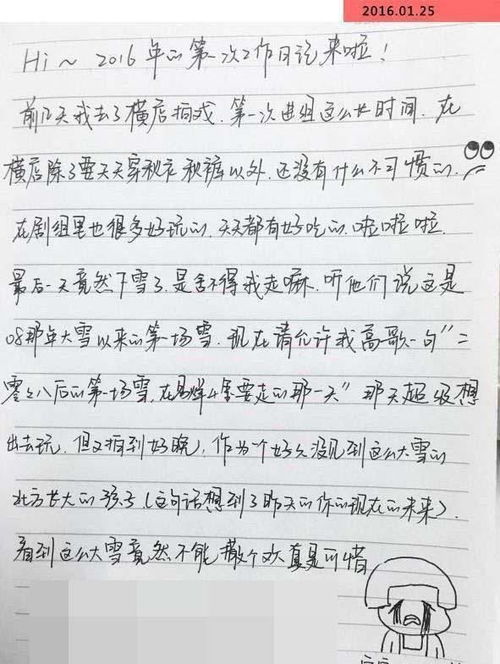 2016.01.25
Hi~2016年的第一次工作日记来啦!
前几天我去了横店拍戏,第一次进组这么长时间,在
横店除了要天天穿秋衣秋裤以外,还没有什么不习惯的,
在剧组里也很多好玩的,天天都有好吃的,啦啦啦,
最后一天竟然下雪了,是舍不得我走嘛,听他们说这是
08那年大雪以来的第一场雪,现在请允许我高歌一句"二
零零八后的第一场雪,在易烊千玺要走的那一天"那天超级想
出去玩,但又拍到好晚,作为一个好久没见到这么大雪的
北方长大的孩子(这句话想到了昨天的你的现在的未来).
看到这么大雪竟然不能撒个欢真是可惜